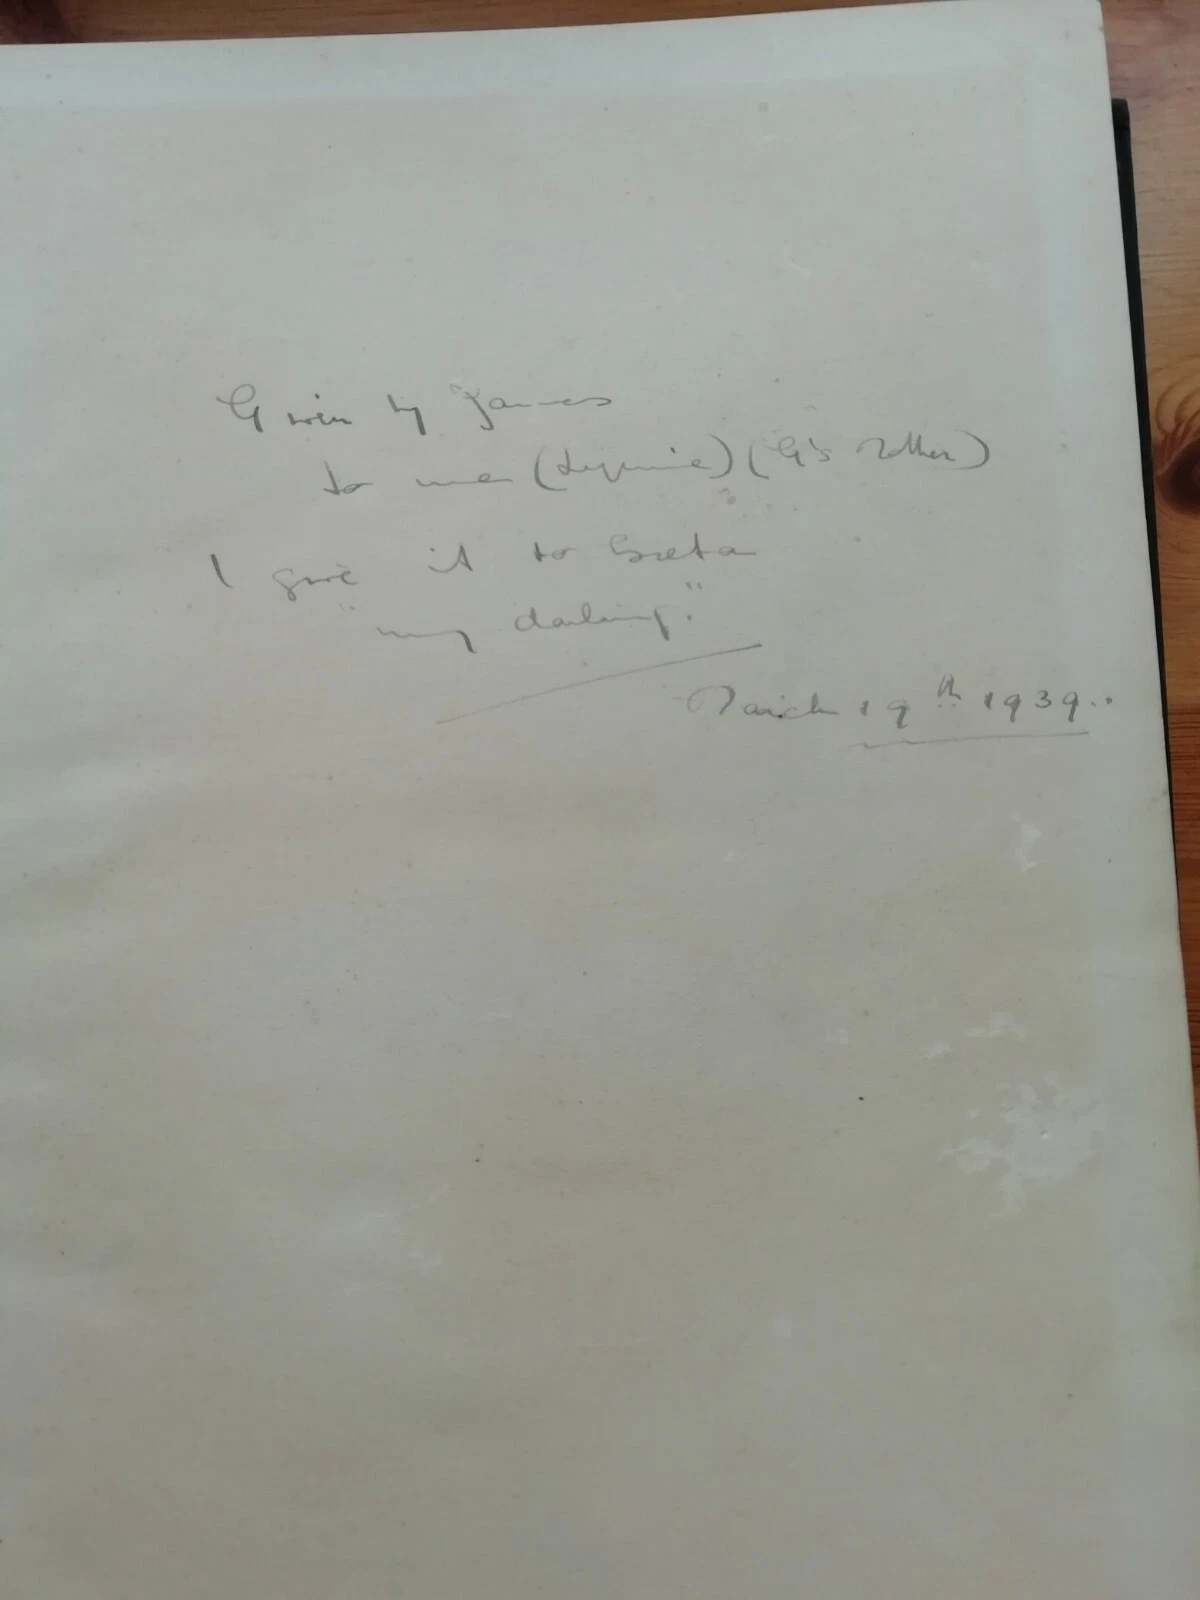 Given by James
to me ( ) (G's Mother)
I give it to Greta
"my darling."
March 19th 1939..